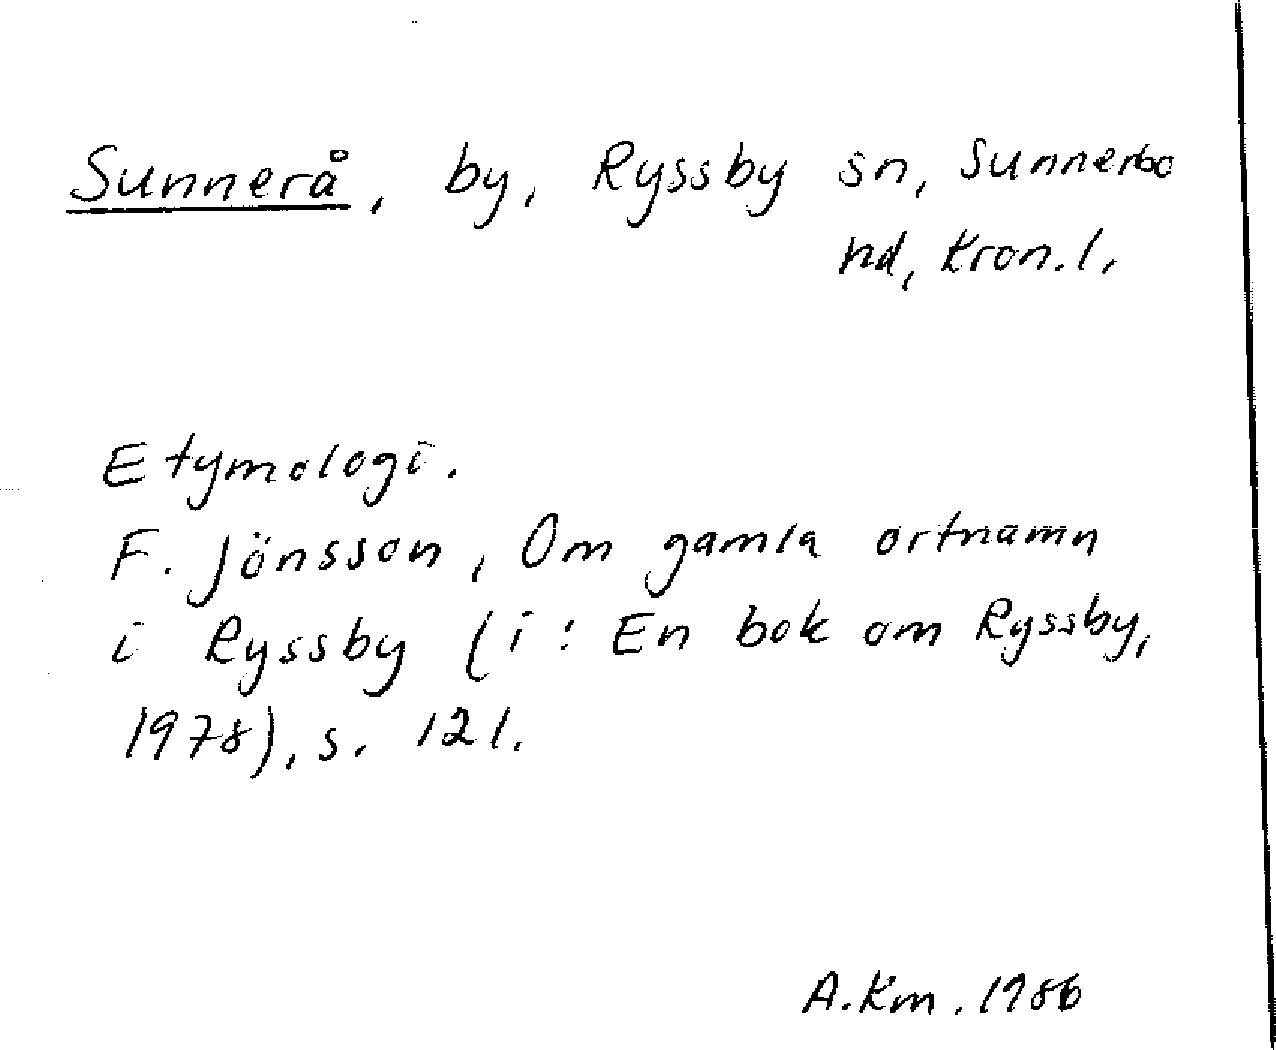 Sunnerå, by, Ryssby sn, Sunnerbo
hd, Kron.l.
Etymologi.
F. Jönsson, Om gamla ortnamn
i Ryssby (i: En bok om Ryssby,
1978), s. 121.
A.Km. 1986